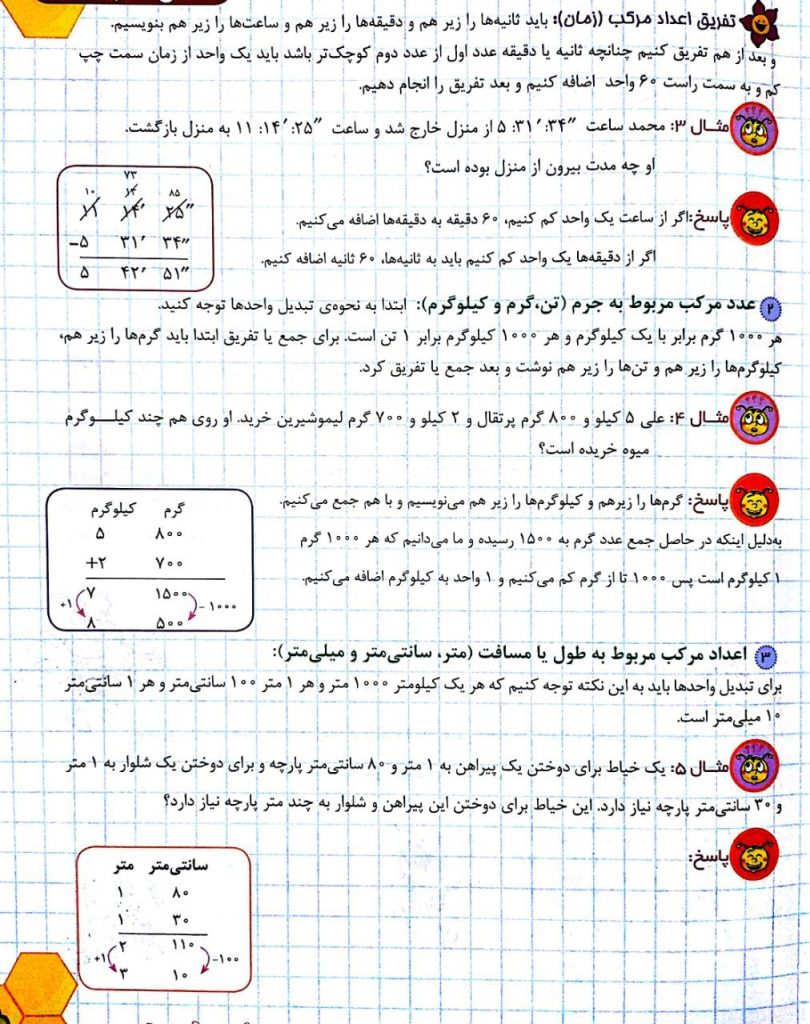 تفریق اعداد مرکب (زمان): باید ثانیه‌ها را زیر هم و دقیقه‌ها را زیر هم و ساعت‌ها را زیر هم بنویسیم.
و بعد از هم تفریق کنیم چنانچه ثانیه یا دقیقه عدد اول از عدد دوم کوچک‌تر باشد باید یک واحد از زمان سمت چپ
کم و به سمت راست ۶۰ واحد اضافه کنیم و بعد تفریق را انجام دهیم.
مثال ۳: محمد ساعت ″۳۴ :′۳۱ :۵ از منزل خارج شد و ساعت ″۲۵ :′۱۴ :۱۱ به منزل بازگشت.
او چه مدت بیرون از منزل بوده است؟
پاسخ: اگر از ساعت یک واحد کم کنیم، ۶۰ دقیقه به دقیقه‌ها اضافه می‌کنیم.
اگر از دقیقه‌ها یک واحد کم کنیم باید به ثانیه‌ها، ۶۰ ثانیه اضافه کنیم.
۷۳
۱۰ ۱۳ ۸۵
۱۱ ۱۴′ ۲۵″
−۵ ۳۱′ ۳۴″
۵ ۴۲′ ۵۱″
۲ عدد مرکب مربوط به جرم (تن،گرم و کیلوگرم): ابتدا به نحوه‌ی تبدیل واحدها توجه کنید.
هر ۱۰۰۰ گرم برابر با یک کیلوگرم و هر ۱۰۰۰ کیلوگرم برابر ۱ تن است. برای جمع یا تفریق ابتدا باید گرم‌ها را زیر هم،
کیلوگرم‌ها را زیر هم و تن‌ها را زیر هم نوشت و بعد جمع یا تفریق کرد.
مثال ۴: علی ۵ کیلو و ۸۰۰ گرم پرتقال و ۲ کیلو و ۷۰۰ گرم لیموشیرین خرید. او روی هم چند کیلوگرم
میوه خریده است؟
پاسخ: گرم‌ها را زیرهم و کیلوگرم‌ها را زیر هم می‌نویسیم و با هم جمع می‌کنیم.
به‌دلیل اینکه در حاصل جمع عدد گرم به ۱۵۰۰ رسیده و ما می‌دانیم که هر ۱۰۰۰ گرم
۱ کیلوگرم است پس ۱۰۰۰ تا از گرم کم می‌کنیم و ۱ واحد به کیلوگرم اضافه می‌کنیم.
گرم کیلوگرم
۵ ۸۰۰
+۲ ۷۰۰
+۱ ۷ ۱۵۰۰ −۱۰۰۰
۸ ۵۰۰
۳ اعداد مرکب مربوط به طول یا مسافت (متر، سانتی‌متر و میلی‌متر):
برای تبدیل واحدها باید به این نکته توجه کنیم که هر یک کیلومتر ۱۰۰۰ متر و هر ۱ متر ۱۰۰ سانتی‌متر و هر ۱ سانتی‌متر
۱۰ میلی‌متر است.
مثال ۵: یک خیاط برای دوختن یک پیراهن به ۱ متر و ۸۰ سانتی‌متر پارچه و برای دوختن یک شلوار به ۱ متر
و ۳۰ سانتی‌متر پارچه نیاز دارد. این خیاط برای دوختن این پیراهن و شلوار به چند متر پارچه نیاز دارد؟
پاسخ:
سانتی‌متر متر
۱ ۸۰
۱ ۳۰
+۱ ۲ ۱۱۰ −۱۰۰
۳ ۱۰